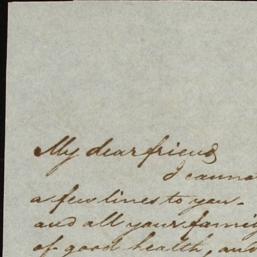 My dear friend
I canno
a few lines to you.
and all your famil
of good health, and